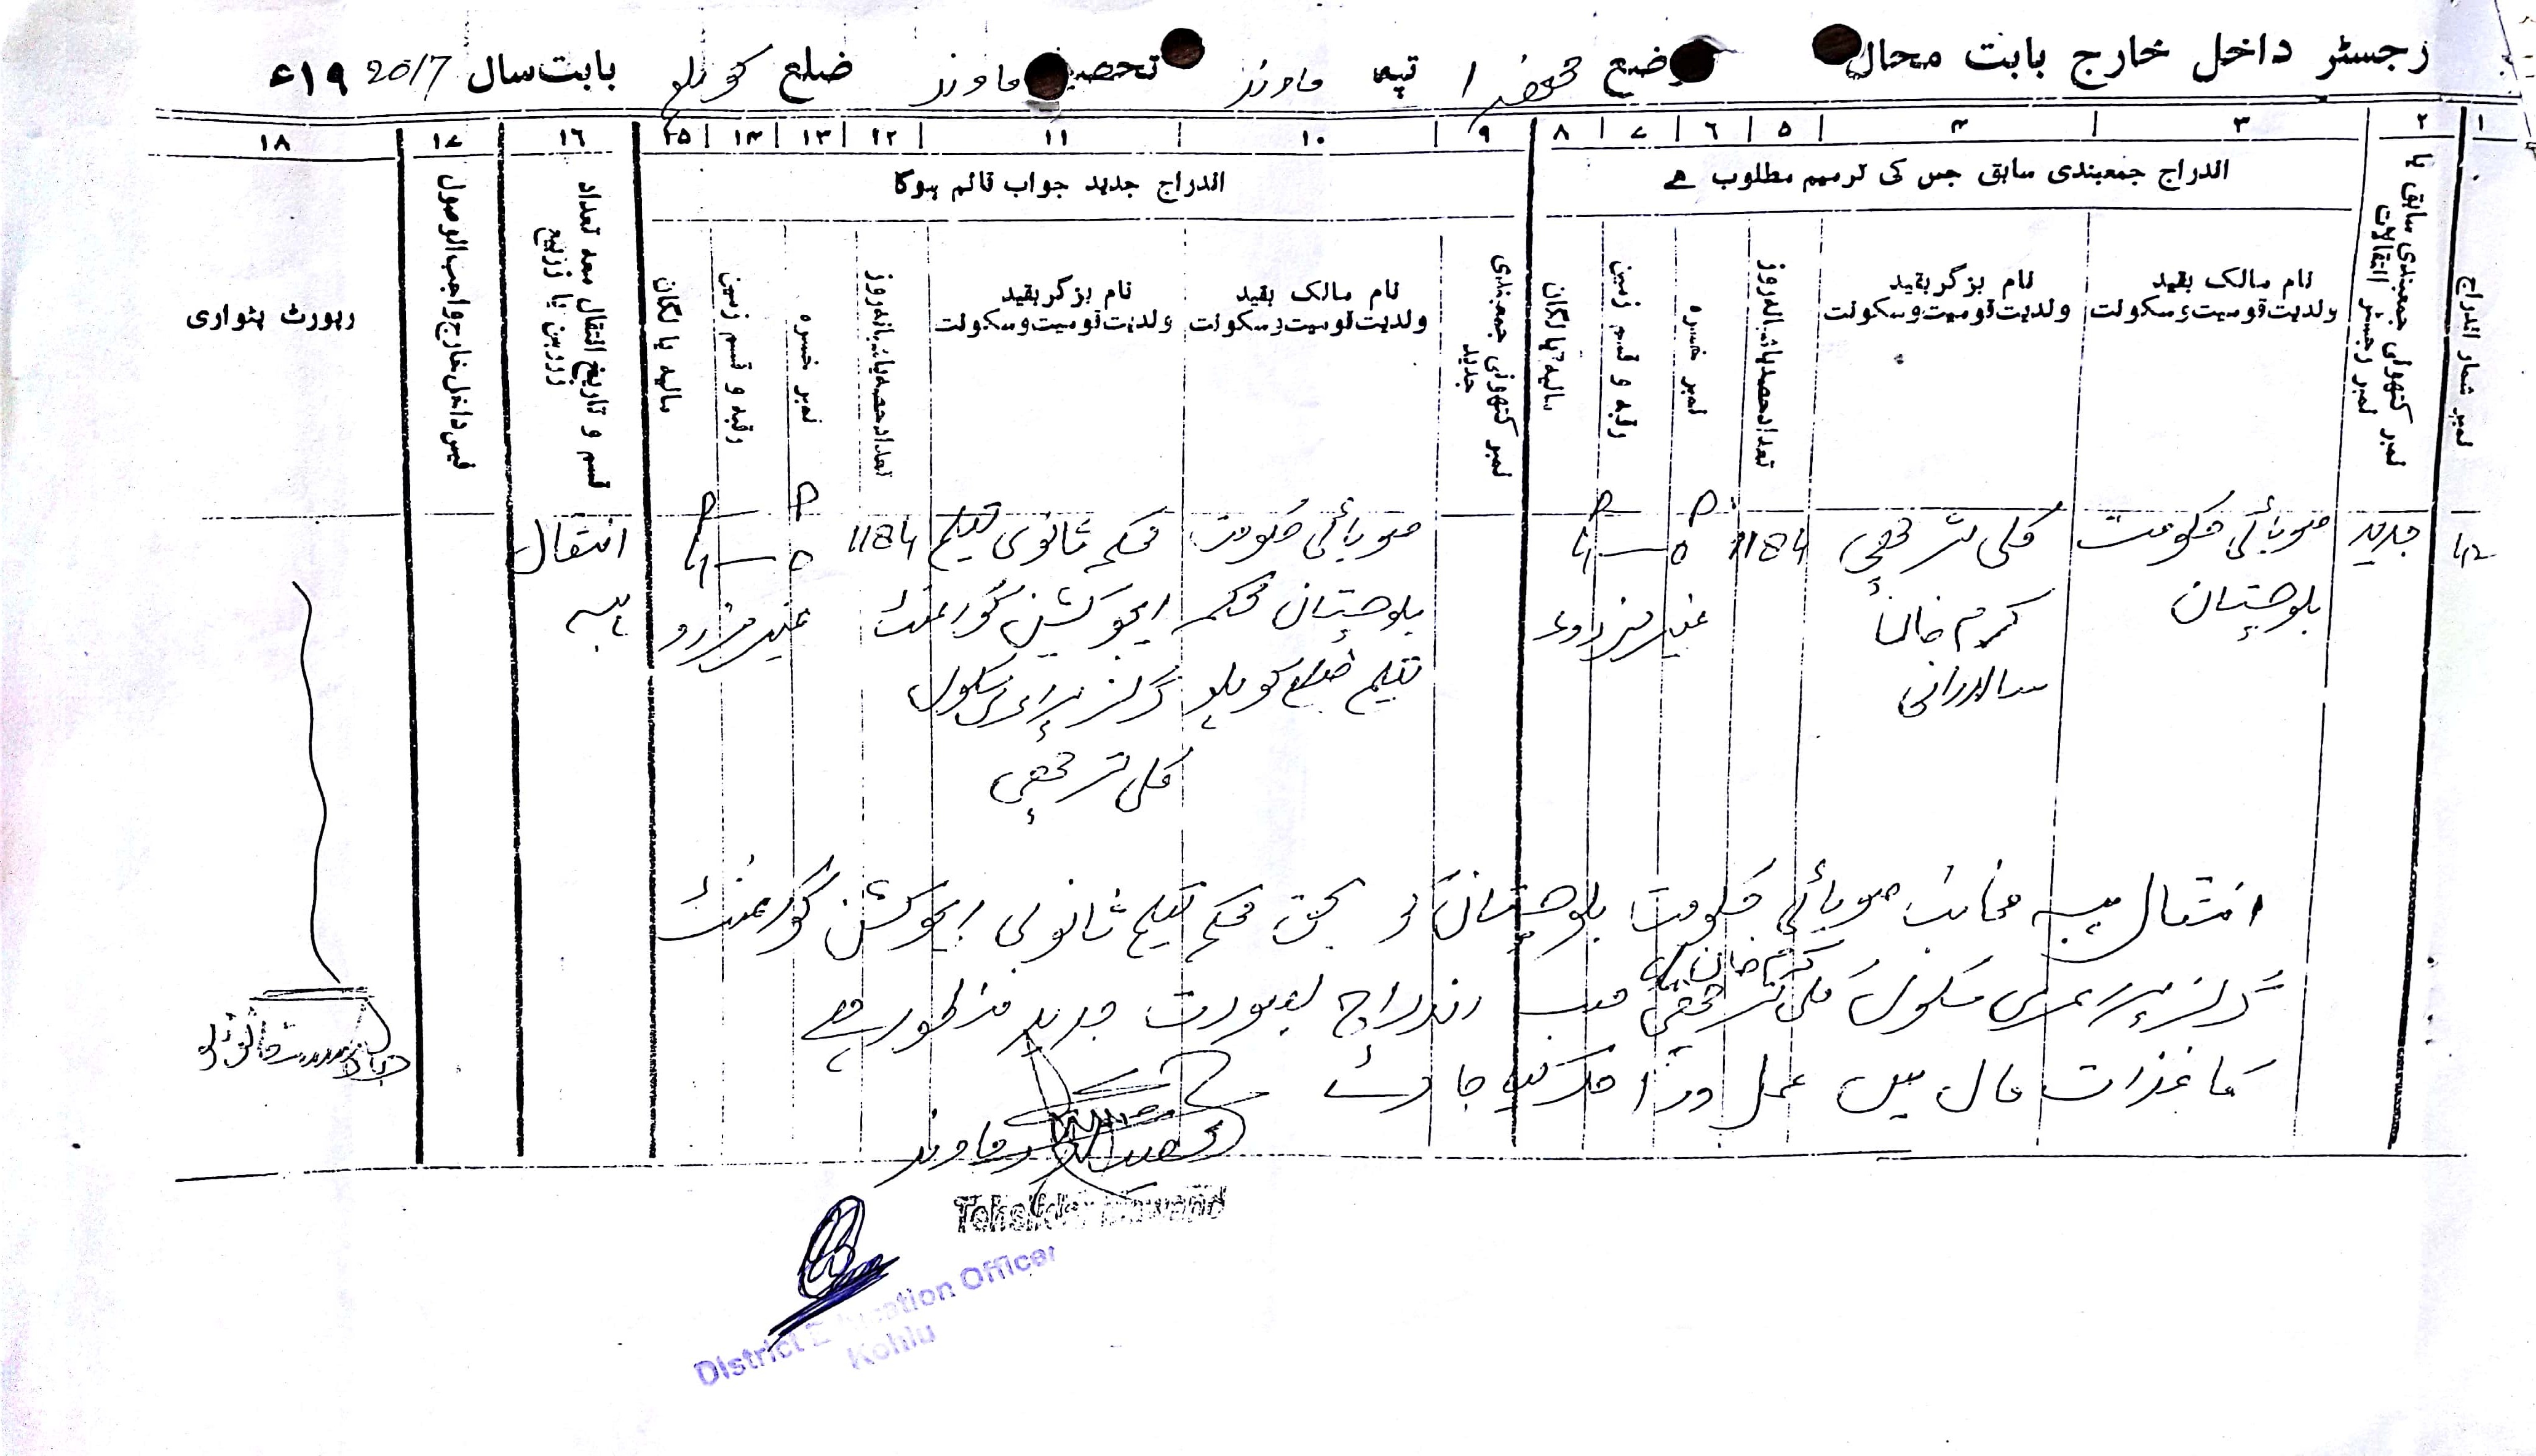 رجسٹر داخل خارج بابت محال وضع مخضر 1 تپہ ماوند تحصیل ماوند ضلع کوہلو بابت سال ۱۹ء 2017
۱ ۲ ۳ ۴ ۵ ۶ ۷ ۸ ۹ ۱۰ ۱۱ ۱۲ ۱۳ ۱۴ ۱۵ ۱۶ ۱۷ ۱۸
اندراج جمعبندی سابق جس کی ترمیم مطلوب ہے
اندراج جدید جواب قائم ہوگا
نمبر شمار اندراج
نمبر کتھونی جمعبندی سابق یا
نمبر رجسٹر انتقالات
نام مالک بقید
ولدیت قومیت و سکونت
نام بزگر بقید
ولدیت قومیت و سکونت
تعداد حصہ یا شبانہ روز
نمبر خسرہ
رقبہ و قسم زمین
مالیہ یا لگان
نمبر کتھونی جمعبندی
جدید
نام مالک بقید
ولدیت قومیت و سکونت
نام بزگر بقید
ولدیت قومیت و سکونت
تعداد حصہ یا شبانہ روز
نمبر خسرہ
رقبہ و قسم زمین
مالیہ یا لگان
قسم و تاریخ انتقال معہ تعداد
زر رہن یا زر بیع
فیس داخل خارج واجب الوصول
رپورٹ پٹواری
جدید
صوبائی حکومت
بلوچستان
کلی
کرم خان
سالارانی
1184
غیر مزروعہ
صوبائی حکومت
بلوچستان محکمہ
تعلیم ضلع کوہلو
محکمہ ثانوی تعلیم
ایجوکیشن گورنمنٹ
گرلز پرائمری سکول
کلی
1184
غیر مزرو
انتقال
ہبہ
انتقال ہبہ منجانب صوبائی حکومت بلوچستان بحق محکمہ تعلیم ثانوی ایجوکیشن گورنمنٹ
کرم خان
گرلز پرائمری سکول کلی اندراج بصورت جدید منظور ہے
کاغذات مال میں عمل درآمد کیا جاوے
تحصیلدار ماوند
Tehsildar Mawand
District Education Officer
Kohlu